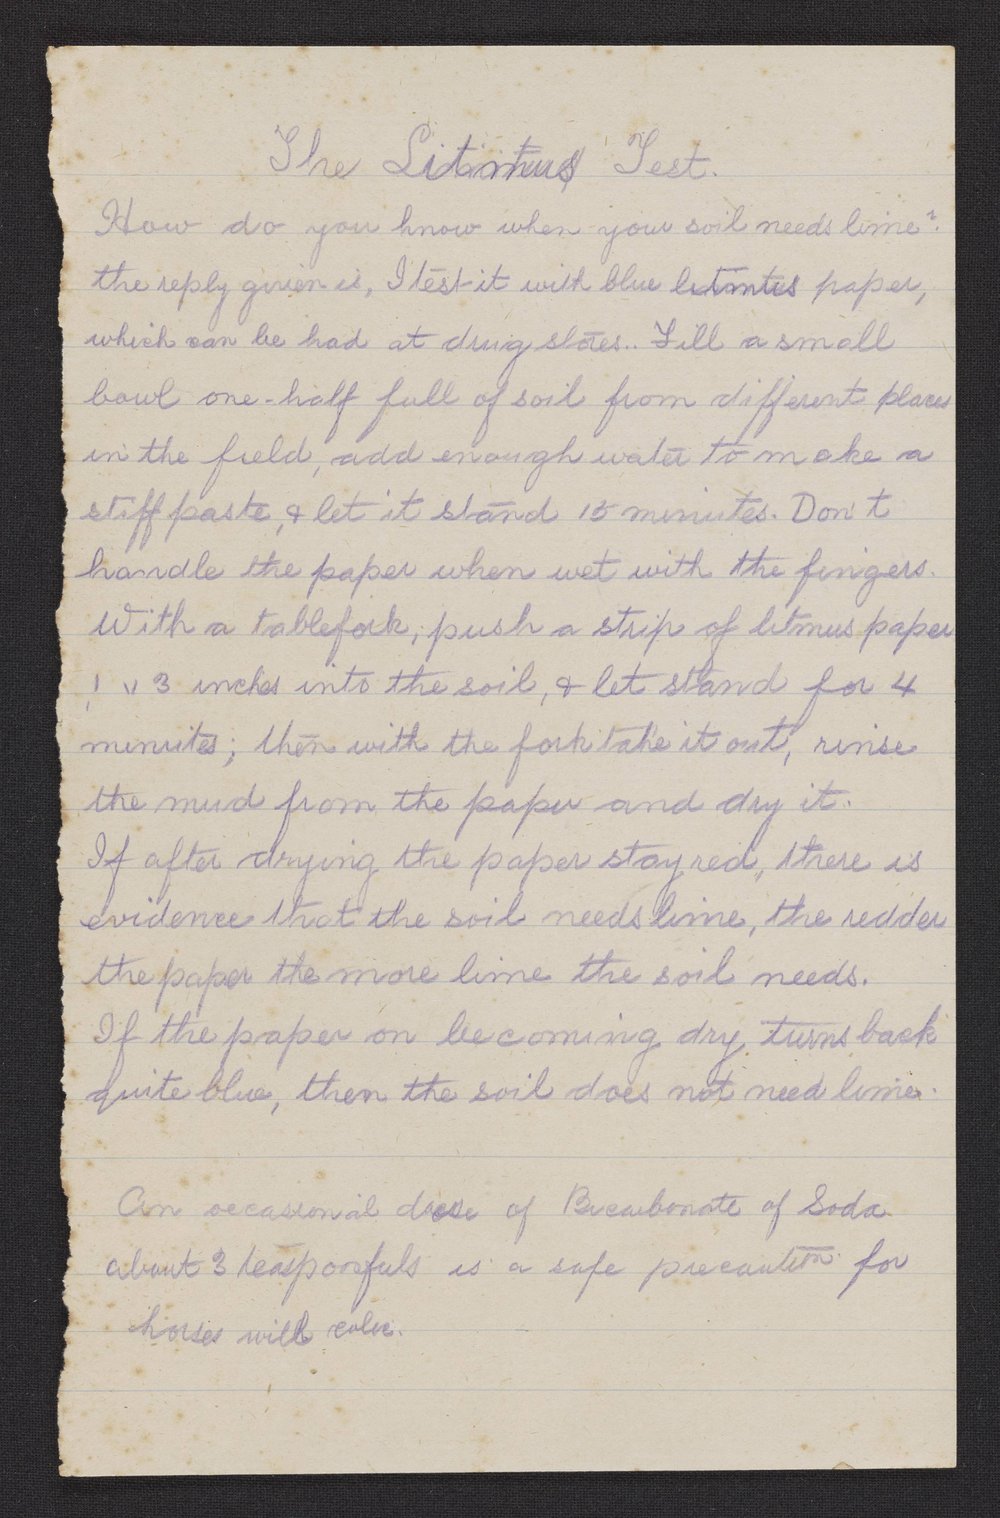 The Litmus Test.
How do you know when your soil needs lime?
the reply given is, I test it with blue litmus paper,
which can be had at drug stores.. Fill a small
bowl one-half full of soil from different places
in the field, add enough water to make a
stiff paste, & let it stand 15 minutes. Don't
handle the paper when wet with the fingers.
With a tablefork, push a strip of litmus paper
1 " 3 inches into the soil, & let stand for 4
minutes; then with the fork take it out, rinse
the mud from the paper and dry it.
If after drying the paper stay red, there is
evidence that the soil needs lime, the redder
the paper the more lime the soil needs.
If the paper on becoming dry turns back
quite blue, then the soil does not need lime.
An occasional dose of Bicarbonate of Soda
about 3 teaspoonfuls is a safe precaution for
horses with colic.